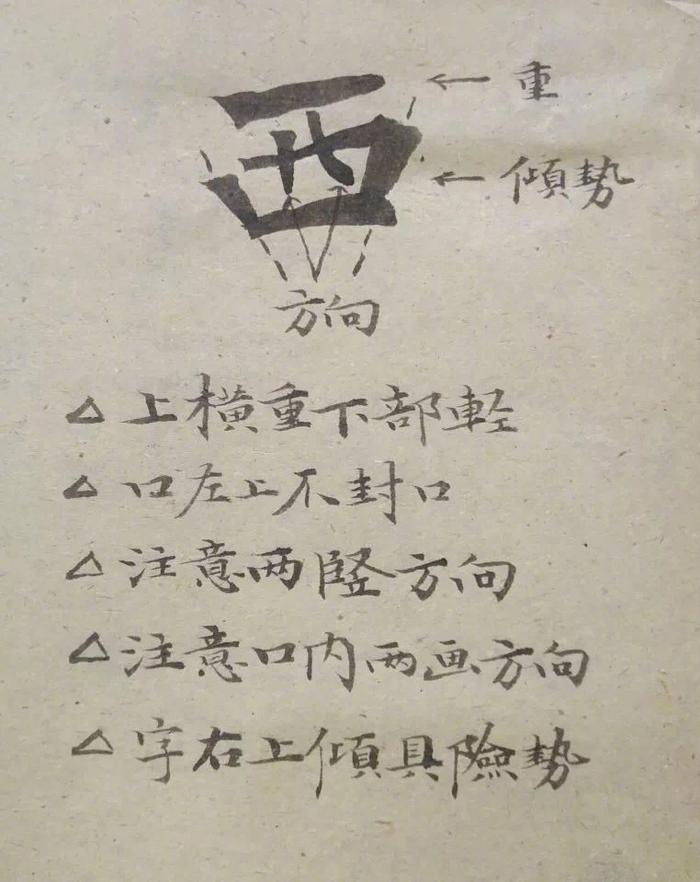 西
重
傾勢
方向
△上橫重下部輕
△口左上不封口
△注意两竖方向
△注意口内两画方向
△字右上傾具險勢